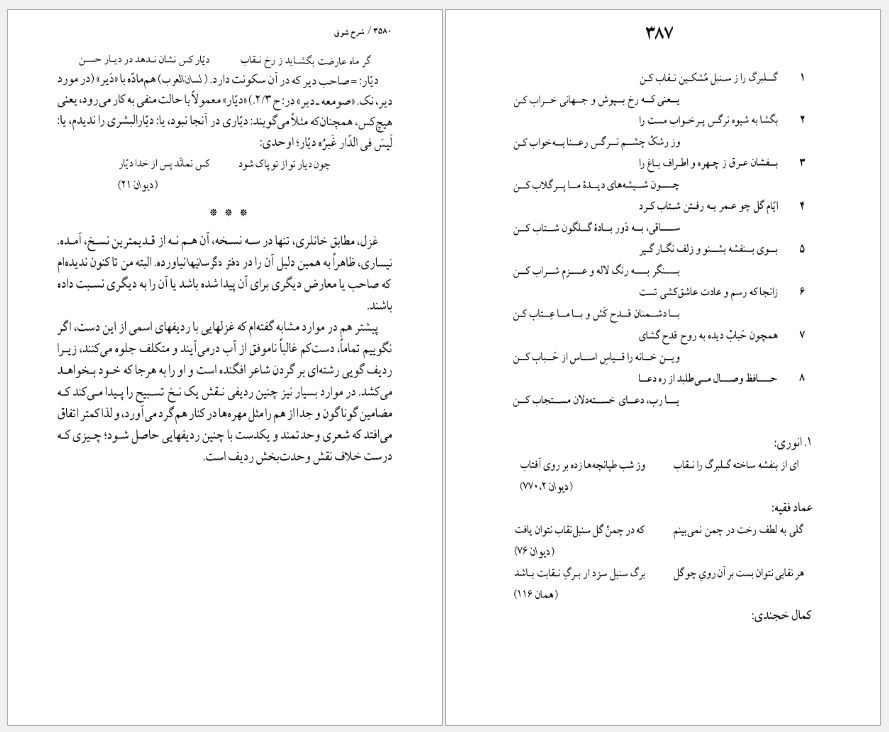 ۳۵۸۰ / شرح شوق
گر ماه عارضت بگشاید ز رخ نقاب دیّار کس نشان ندهد در دیار حسن
دیّار: = صاحب دیر که در آن سکونت دارد. (لسان‌العرب) هم‌مادّه با «دَیر» (در مورد
دیر، نک. «صومعه ـ دیر» در: ح ۲/۳.) «دیّار» معمولاً با حالت منفی به کار می‌رود، یعنی
هیچ کس، همچنان‌که مثلاً می‌گویند: دیّاری در آنجا نبود، یا: دیّارالبشری را ندیدم، یا:
لَیسَ فی الدّار غَیرُه دیّار؛ اوحدی:
چون دیار تو از تو پاک شود کس نماند پس از خدا دیّار
(دیوان ۲۱)
* * *
غزل، مطابق خانلری، تنها در سه نسخه، آن هم نه از قدیمترین نسخ، آمده.
نیساری، ظاهراً به همین دلیل آن را در دفتر دگرسانیها نیاورده. البته من تا کنون ندیده‌ام
که صاحب یا معارض دیگری برای آن پیدا شده باشد یا آن را به دیگری نسبت داده
باشند.
پیشتر هم در موارد مشابه گفته‌ام که غزلهایی با ردیفهای اسمی از این دست، اگر
نگوییم تماماً، دست‌کم غالباً ناموفق از آب درمی‌آیند و متکلف جلوه می‌کنند، زیرا
ردیف گویی رشته‌ای بر گردن شاعر افگنده است و او را به هرجا که خود بخواهد
می‌کشد. در موارد بسیار نیز چنین ردیفی نقش یک نخ تسبیح را پیدا می‌کند که
مضامین گوناگون و جدا از هم را مثل مهره‌ها در کنار هم گرد می‌آورد، و لذا کمتر اتفاق
می‌افتد که شعری وحدتمند و یکدست با چنین ردیفهایی حاصل شود؛ چیزی که
درست خلاف نقش وحدت‌بخش ردیف است.
۳۸۷
۱ گلبرگ را ز سنبل مُشکین نقاب کن
یعنی که رخ بپوش و جهانی خراب کن
۲ بگشا به شیوه نرگس پرخواب مست را
وز رشکْ چشم نرگس رعنا به خواب کن
۳ بفشان عرق ز چهره و اطراف باغ را
چون شیشه‌های دیدهٔ ما پرگلاب کن
۴ ایّام گل چو عمر به رفتن شتاب کرد
ساقی، به دَور بادهٔ گلگون شتاب کن
۵ بوی بنفشه بشنو و زلف نگار گیر
بنگر به رنگ لاله و عزم شراب کن
۶ زانجا که رسم و عادت عاشق‌کشی تست
با دشمنان قدح کَش و با ما عِتاب کن
۷ همچون حَبابْ دیده به روح قدح گشای
وین خانه را قیاسِ اساس از حَباب کن
۸ حافظ وصال می‌طلبد از ره دعا
یا رب، دعای خسته‌دلان مستجاب کن
۱. انوری:
ای از بنفشه ساخته گلبرگ را نقاب وز شب طپانچه‌ها زده بر روی آفتاب
(دیوان ۲، ۷۷۰)
عماد فقیه:
گلی به لطف رخت در چمن نمی‌بینم که در چمنْ گل سنبل نقاب نتوان یافت
(دیوان ۷۶)
هر نقابی نتوان بست بر آن رویِ چو گل برگ سنبل سزد ار برگِ نقابت باشد
(همان ۱۱۶)
کمال خجندی: